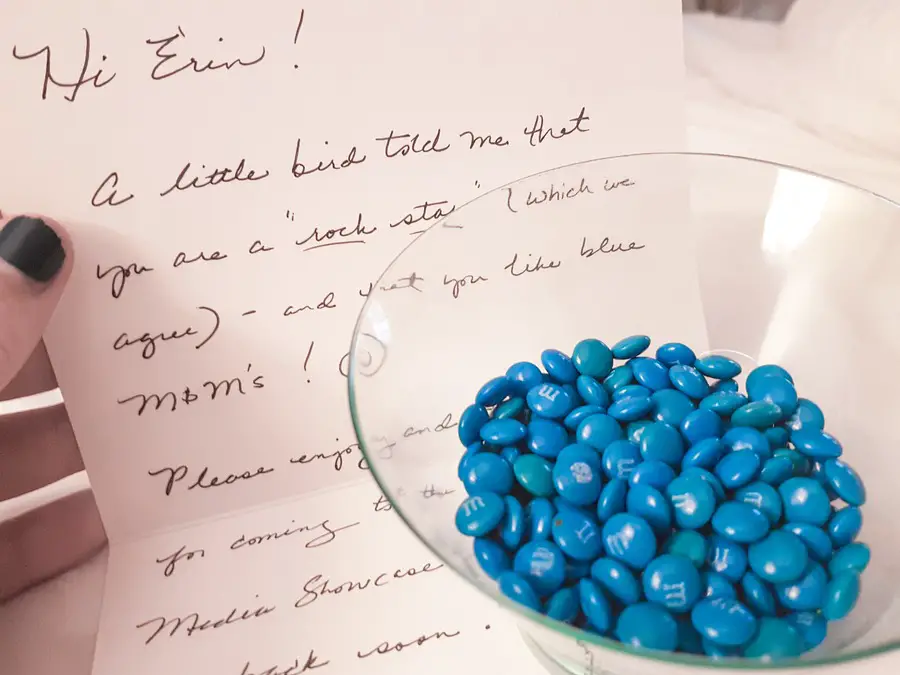 Hi Erin!
A little bird told me that
you are a "rock sta" (which we
agree) - and that you like blue
M&M's!
Please enjoy and
for coming to the
Media Showcase
back soon.
m
m
m
m
m
m